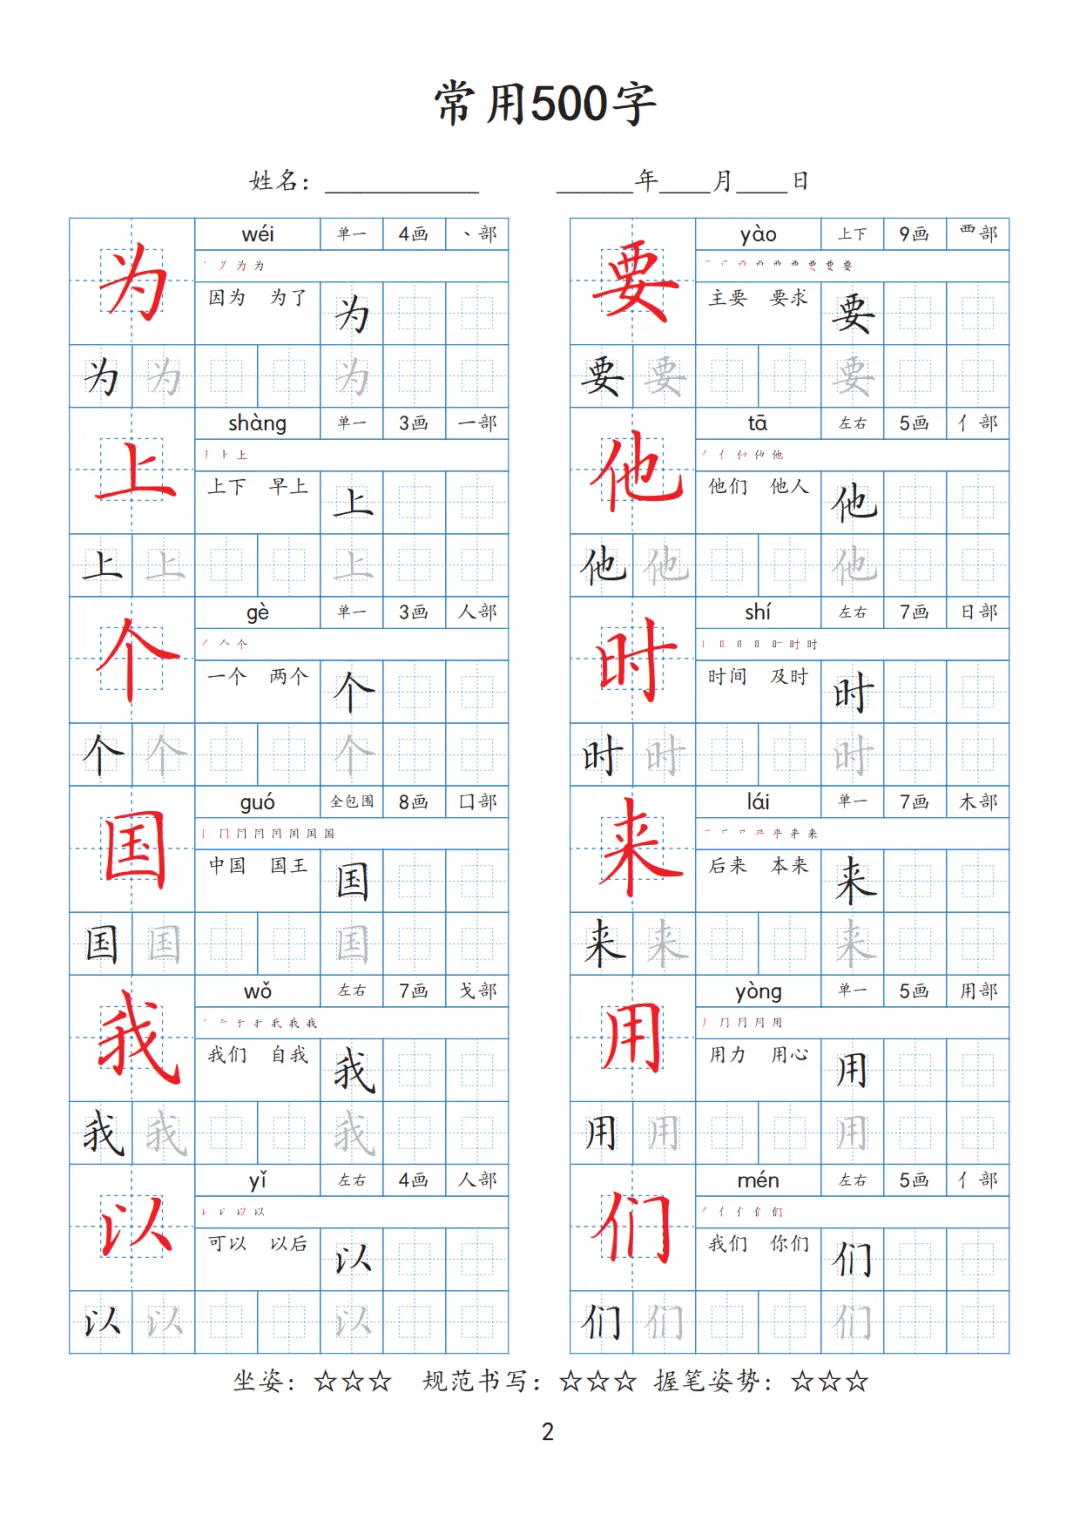 常用500字
姓名：____________ ______年____月____日
为 wéi 单一 4画 丶部
为 为
因为 为了 为
为 为 为
上 shàng 单一 3画 一部
上 上
上下 早上 上
上 上 上
个 gè 单一 3画 人部
丿 人 个
一个 两个 个
个 个 个
国 guó 全包围 8画 囗部
丨 冂 国 国
中国 国王 国
国 国 国
我 wǒ 左右 7画 戈部
我 我 我
我们 自我 我
我 我 我
以 yǐ 左右 4画 人部
以 以
可以 以后 以
以 以 以
要 yào 上下 9画 覀部
要 要 要
主要 要求 要
要 要 要
他 tā 左右 5画 亻部
丿 亻 他 他
他们 他人 他
他 他 他
时 shí 左右 7画 日部
丨 冂 日 日 时 时
时间 及时 时
时 时 时
来 lái 单一 7画 木部
一 来 来
后来 本来 来
来 来 来
用 yòng 单一 5画 用部
丿 冂 月 月 用
用力 用心 用
用 用 用
们 mén 左右 5画 亻部
丿 亻 亻 们 们
我们 你们 们
们 们 们
坐姿：☆☆☆ 规范书写：☆☆☆ 握笔姿势：☆☆☆
2